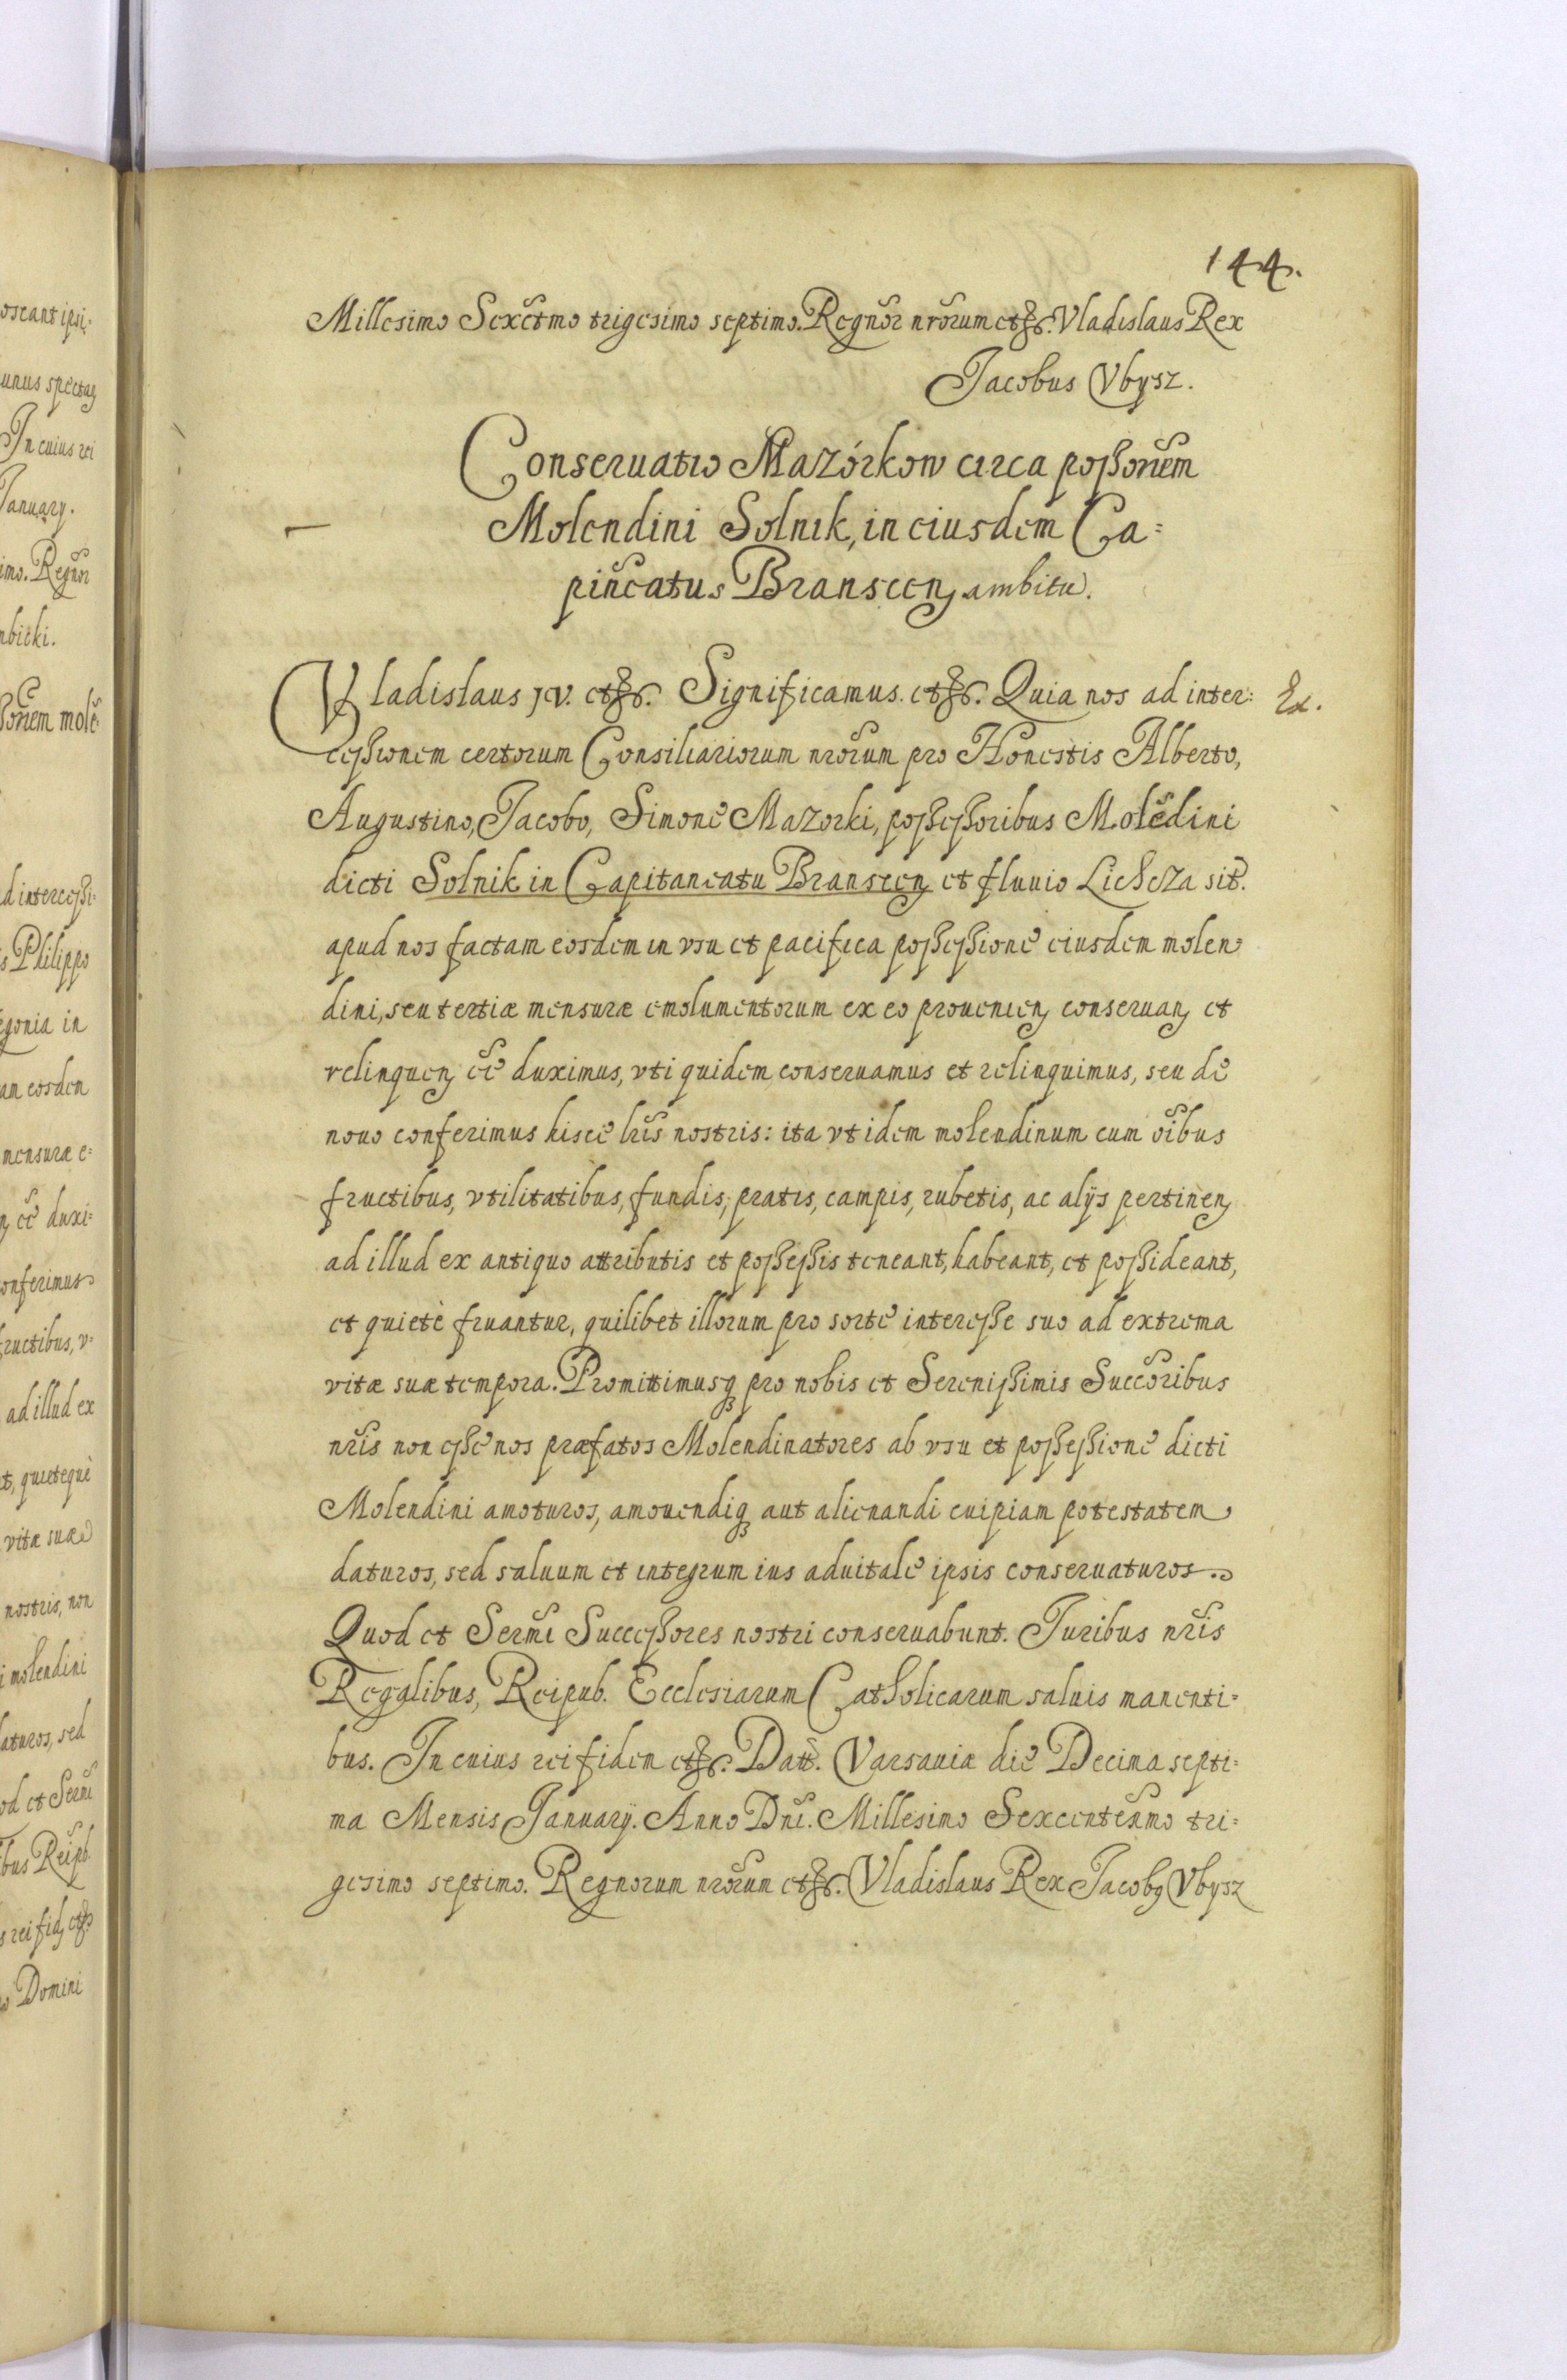 144.
Millesimo Sexctmo trigesimo septimo. Regnor nrorum etc. Vladislaus Rex
Jacobus Vbysz.
Conseruatio Mazórkow circa possonem
Molendini Solnik, in eiusdem Ca=
pincatus Branscen ambitu.
Vladislaus IV. etc. Significamus. etc. Quia nos ad inter= Ex.
cessionem certorum Consiliariorum nrorum pro Honestis Alberto,
Augustino, Jacobo, Simone Mazorki, possessoribus Moledini
dicti Solnik in Capitaneatu Branscen et fluuio Lichcza sit.
apud nos factam eosdem in vsu et pacifica possessione eiusdem molen
dini, seu tertiæ mensuræ emolumentorum ex eo prouenien conseruan et
relinquen ee duximus, vti quidem conseruamus et relinquimus, seu de
nouo conferimus hisce lris nostris: ita vt idem molendinum cum oibus
fructibus, vtilitatibus, fundis, pratis, campis, rubetis, ac alijs pertinen
ad illud ex antiquo attributis et possessis teneant, habeant, et possideant,
et quietè fruantur, quilibet illorum pro sorte interesse suo ad extrema
vitæ suæ tempora. Promittimusq pro nobis et Serenissimis Succoribus
nris non esse nos præfatos Molendinatores ab vsu et possessione dicti
Molendini amoturos, amouendiq aut alienandi cuipiam potestatem
daturos, sed saluum et integrum ius aduitale ipsis conseruaturos.
Quod et Sermi Successores nostri conseruabunt. Juribus nris
Regalibus, Reipub. Ecclesiarum Catholicarum saluis manenti=
bus. In cuius rei fidem etc. Datt. Varsauiæ die Decima septi=
ma Mensis January. Anno Dni. Millesimo Sexcentesimo tri=
gesimo septimo. Regnorum nrorum etc. Vladislaus Rex Jacobq Vbysz